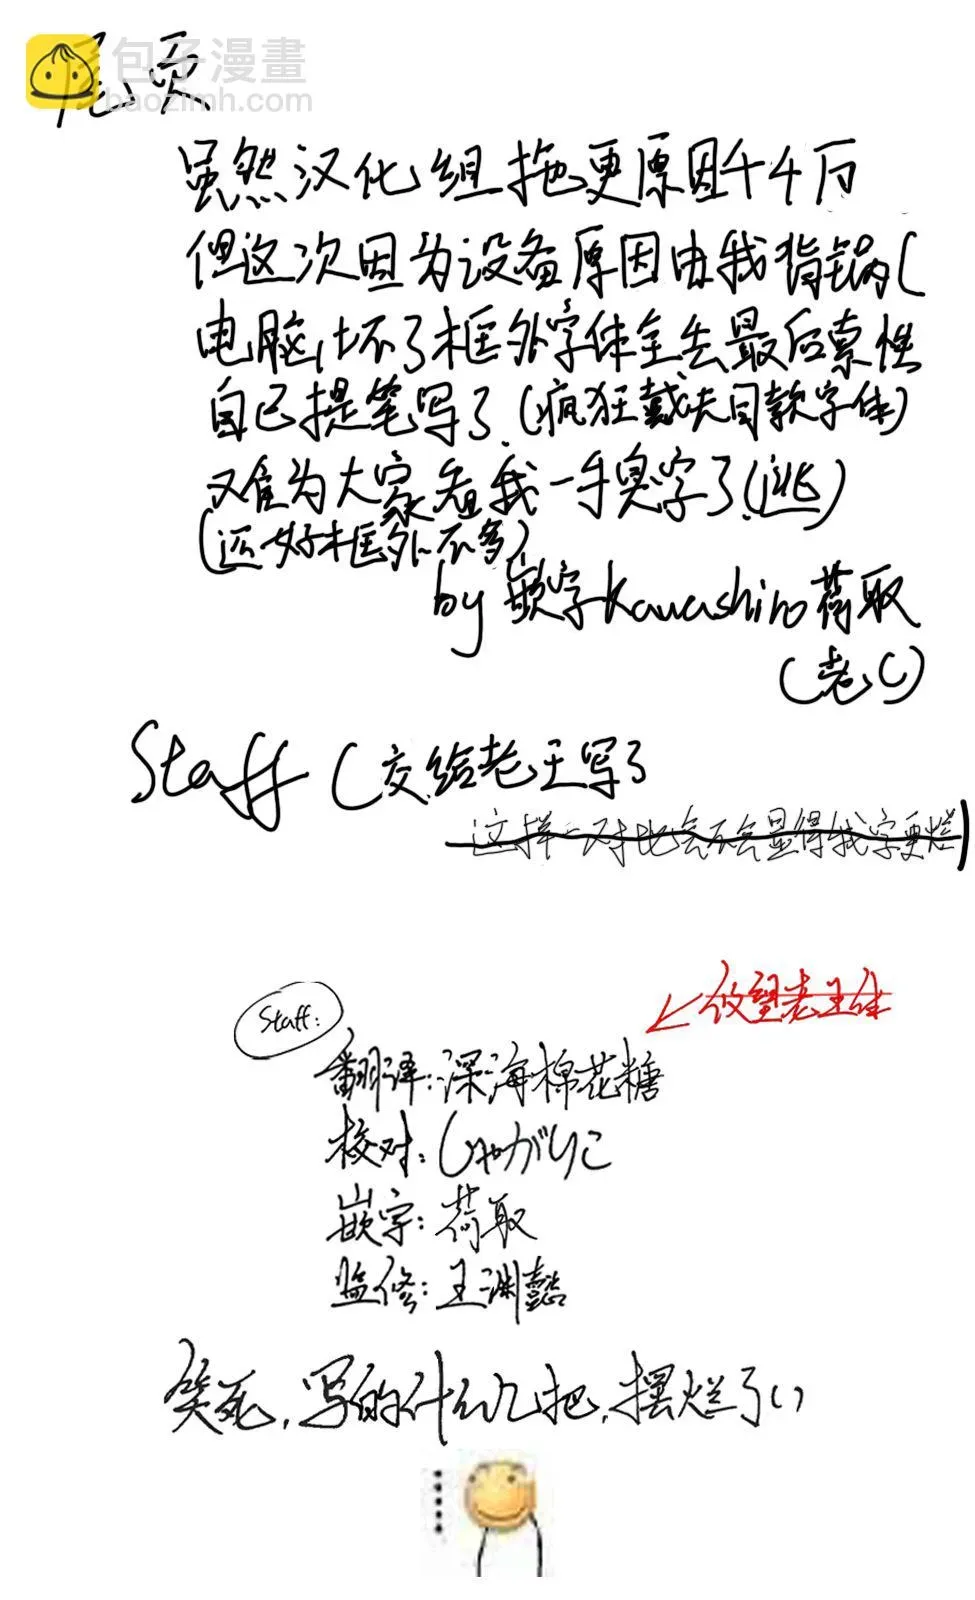 包子漫畫
baozimh.com
尾页
虽然汉化组拖更原因千千万
但这次因为设备原因由我背锅(
电脑坏了框外字体全丢最后索性
自己提笔写了(疯狂戴夫同款字体)
又难为大家看我一手臭字了(逃)
(还好框外不多)
by 嵌字Kawashiro荷取
(老C)
Staff (交给老王写了
这样一对比会不会显得我字更烂)
仪望老王体
Staff:
翻译:深海棉花糖
校对:じゃがりこ
嵌字:荷取
监修:王渊懿
笑死,写的什么几把,摆烂了()